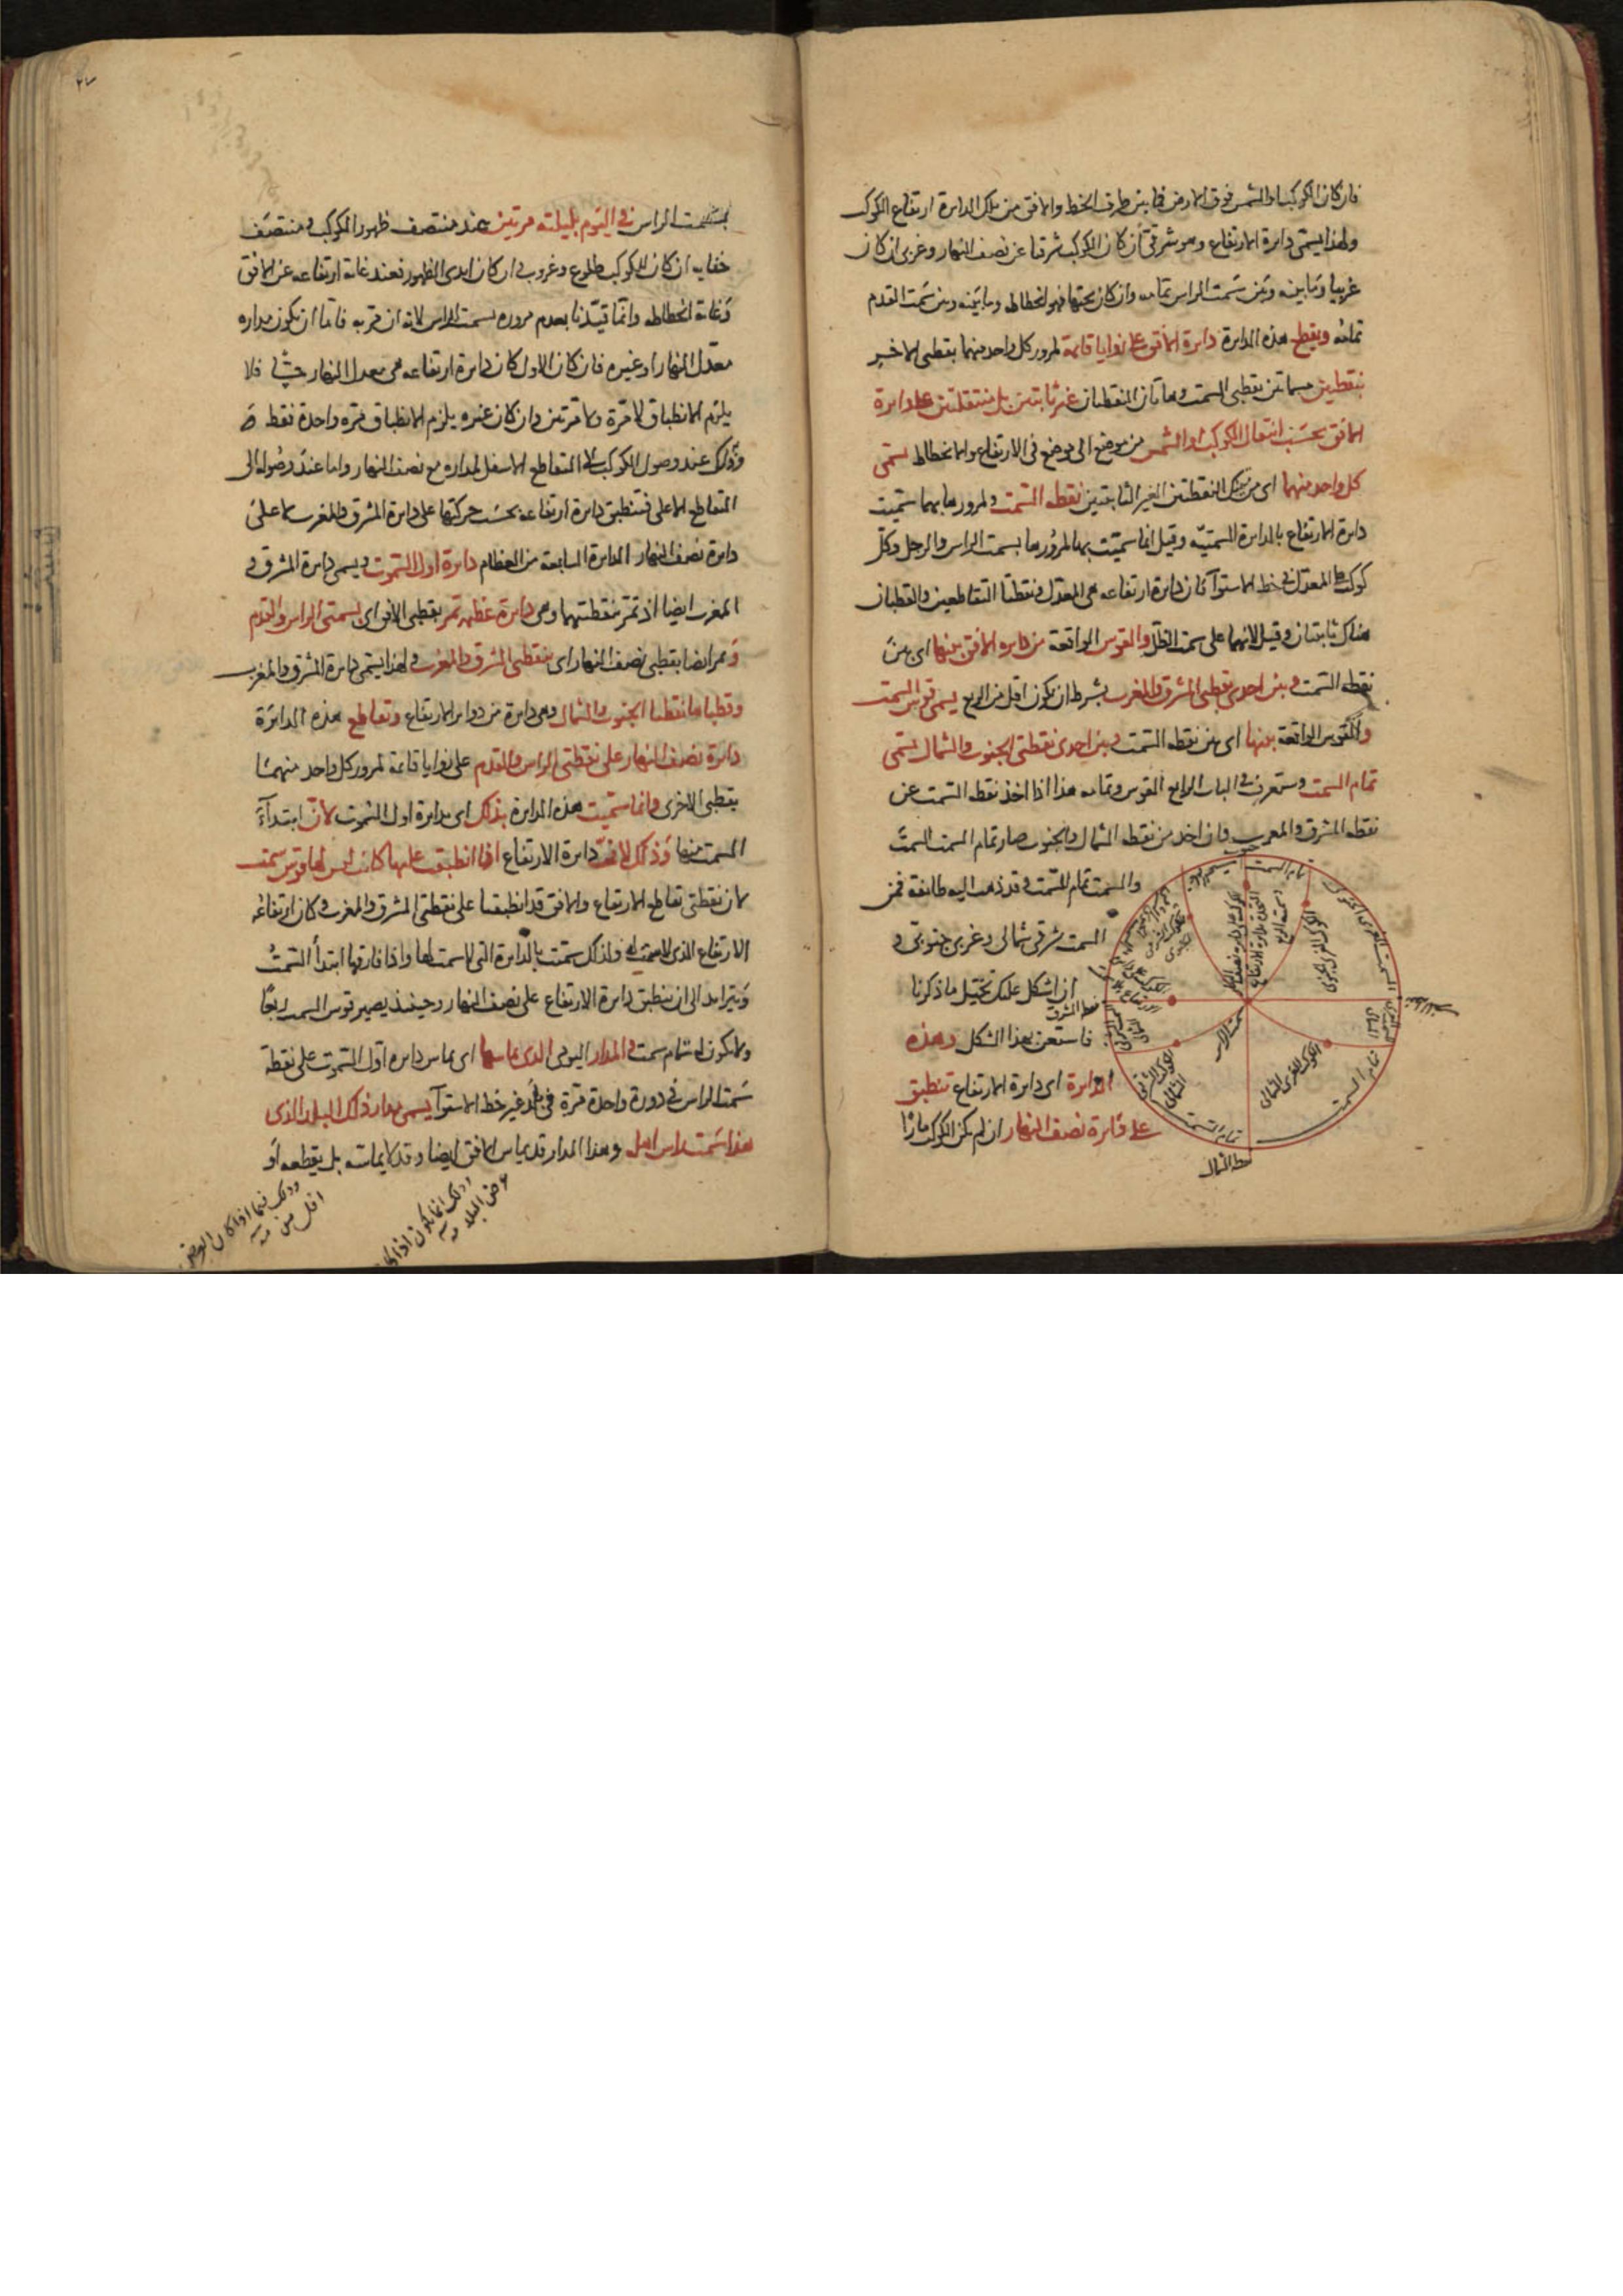 فان كان الكوكب او الشمس فوق الارض فما بين طرف الخط والافق من تلك الدايرة ارتفاع الكوكب
ولهذا يسمى دايرة الارتفاع وهو شرقى ان كان الكوكب شرقيا عن نصف النهار وغربى ان كان
غربيا وما بينه وبين سمت الراس تمامه وان كان تحتها فهو انحطاطه وما بينه وبين سمت القدم
تمامه ويقطع هذه الدايرة دايرة الافق على زوايا قايمة لمرور كل واحد منهما بقطبى الاخر
بنقطتين مسامتتين بقطبى السمت وهاتان النقطتان غير ثابتتين بل منتقلتين على دايرة
الافق بحسب انتقال الكوكب او الشمس من موضع الى موضع فى الارتفاع والانحطاط تسمى
كل واحد منهما اى من تينك النقطتين الغير الثابتتين نقطه السمت ولمرورها بهما سميت
دايرة الارتفاع بالدايرة السمتيّه وقيل انما سميت بها لمرورها بسمت الراس والرجل وكل
كوكب على المعدل فى خط الاستوآ فان دايرة ارتفاعه هى المعدل ونقطتا التقاطعين والقطبان
هناك ثابتتان وقيل لانهما على سمت الظل والقوس الواقعة من دايره الافق بينها اى بين
نقطه السمت وبين احدى نقطتى المشرق والمغرب بشرط ان يكون اقل من الربع يسمى قوس السمت
والقوس الواقعة بينها اى بين نقطه السمت وبين احدى نقطتى الجنوب والشمال يسمى
تمام السمت وستعرف فى الباب الرابع القوس وتمامه هذا اذا اخذ نقطه السمت عن
نقطه المشرق والمغرب وان اخذ من نقطه الشمال والجنوب صار تمام السمت السمت
والسمت تمام السمت وقد ذهب اليه طائفة فمن
السمت شرقى شمالى وغربى جنوبى و
ان اشكل عليك تخيل ما ذكرنا
فاستعن بهذا الشكل وهذه
الدايرة اى دايرة الارتفاع تنطبق
على دايرة نصف النهار ان لم يكن الكوكب مارّا
تمام السمت
الكوكب الغربى الجنوبى
نقطه المشرق
سمت الراس
الكوكب الغربى الشمالى
الكوكب الشرقى الشمالى
تمام السمت
تمام السمت
نقطه الشمال
بسمت الراس فى اليوم بليلته مرتين عند منتصف ظهور الكوكب ومنتصف
خفايه ان كان للكوكب طلوع وغروب وان كان ابدى الظهور فعند غاية ارتفاعه عن الافق
وغاية انحطاطه وانما قيّدنا بعدم مروره بسمت الراس لانه ان مر به فاما ان يكون مداره
معدل النهار او غيره فان كان الاول كان دايرة ارتفاعه هى معدل النهار فلا
يلزم الانطباق لا مرة ولا مرتين وان كان غيره يلزم الانطباق مره واحدة فقط
وذلك عند وصول الكوكب الى التقاطع الاسفل لمداره مع نصف النهار واما عند وصوله الى
التقاطع الاعلى فتنطبق دايرة ارتفاعه بحسب حركتها على دايرة المشرق والمغرب لا على
دايرة نصف النهار الدايرة السابعة من العظام دايرة اول السموت ويسمى دايرة المشرق و
المغرب ايضا اذ تمر بنقطتيهما وهى دايرة عظيمه تمر بقطبى الافق اى بسمتى الراس والقدم
وتمر ايضا بقطبى نصف النهار اى بنقطتى المشرق والمغرب ولهذا يسمى دايرة المشرق والمغرب
وقطباها نقطتا الجنوب والشمال وهى دايرة من دواير الارتفاع وتقاطع هذه الدائرة
دائرة نصف النهار على نقطتى الراس والقدم على زوايا قايمة لمرور كل واحد منهما
بقطبى الاخرى وانما سميت هذه الدايرة بذلك اى بدايرة اول السموت لان ابتدآء
السمت منها وذلك لان دايرة الارتفاع اذا انطبقت عليها كانت ليس لها قوس سمت
لان نقطتى تقاطع الارتفاع والافق قد انطبقتا على نقطتى المشرق والمغرب وكان ارتفاعه
الارتفاع الذى لا سمت له ولذلك سميت بالدايرة التى لا سمت لها واذا فارقها ابتدأ السمت
ويتزايد الى ان ينطبق دايرة الارتفاع على نصف النهار وحينئذ يصير قوس السمت ربعًا
ولا يكون له تمام سمت والمدار اليومى الذى يماسها اى يماس دايره اوّل السموت على نقطة
سمت الراس فى دورة واحدة مرة فى بلد غير خط الاستوآ يسمى مدار ذلك البلد الذى
هذا سمت راس اهله وهذا المدار قد يماس الافق ايضا وقد لا يماسّه بل يقطعه او
وذلك فيما اذا كان العرض
اقل من مه
وذلك انما يكون اذا كان
عرض البلد مه